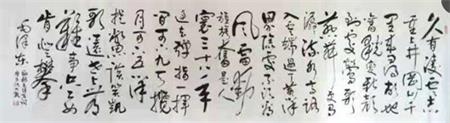 久有凌云志
重上井冈山千
里来寻故地
旧貌变新颜
到处莺歌
燕舞更有
潺潺流水高路
入云端过了黄洋
界险处不须看
风雷动
旌旗奋是人
寰三十八年
过去弹指一挥
间可上九天揽
月可下五洋
捉鳖谈笑凯
歌还世上无
难事只要
肯登攀
毛泽东